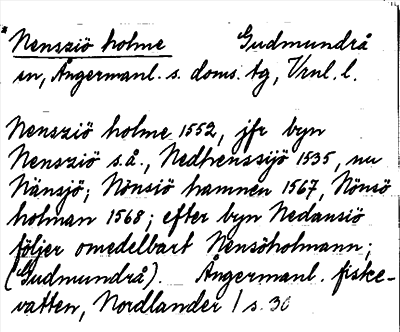 Nensziö holme Gudmundrå
sn, Ångermanl. s. doms. tg, Vrnl. l.
Nensziö holme 1552, jfr byn
Nensziö s.å., Nedhenssijö 1535, nu
Nänsjö; Nönsiö hamnen 1567, Nönsö
holman 1568; efter byn Nedansiö
följer omedelbart Nensöholmann;
(Gudmundrå). Ångermanl. fiske-
vatten, Nordlander / s. 30